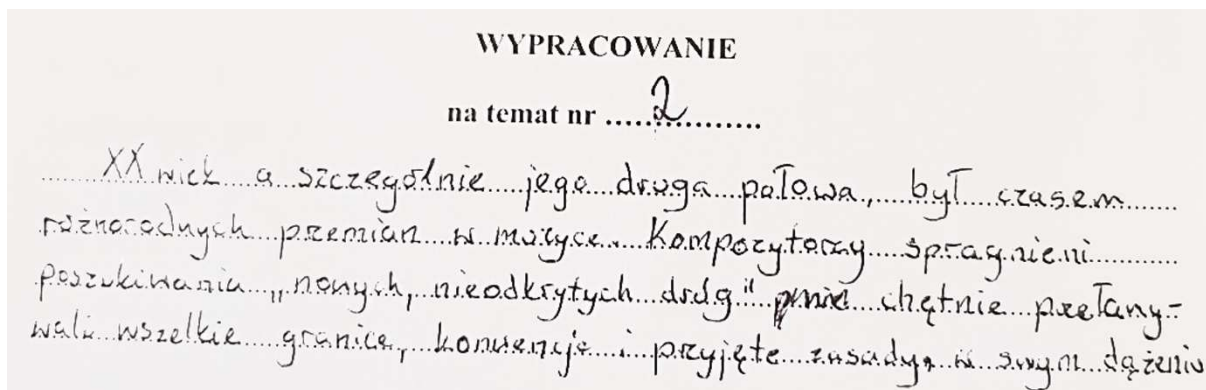 WYPRACOWANIE
na temat nr .....2..........
XX wiek a szczególnie jego druga połowa, był czasem
różnorodnych przemian w muzyce. Kompozytorzy spragnieni
poszukiwania „nowych, nieodkrytych dróg" chętnie przełamy-
wali wszelkie granice, konwencje i przyjęte zasady, w swym dążeniu